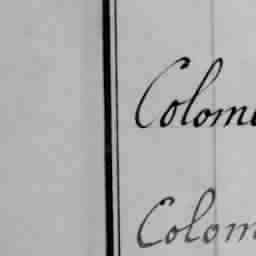 Colom
Colom